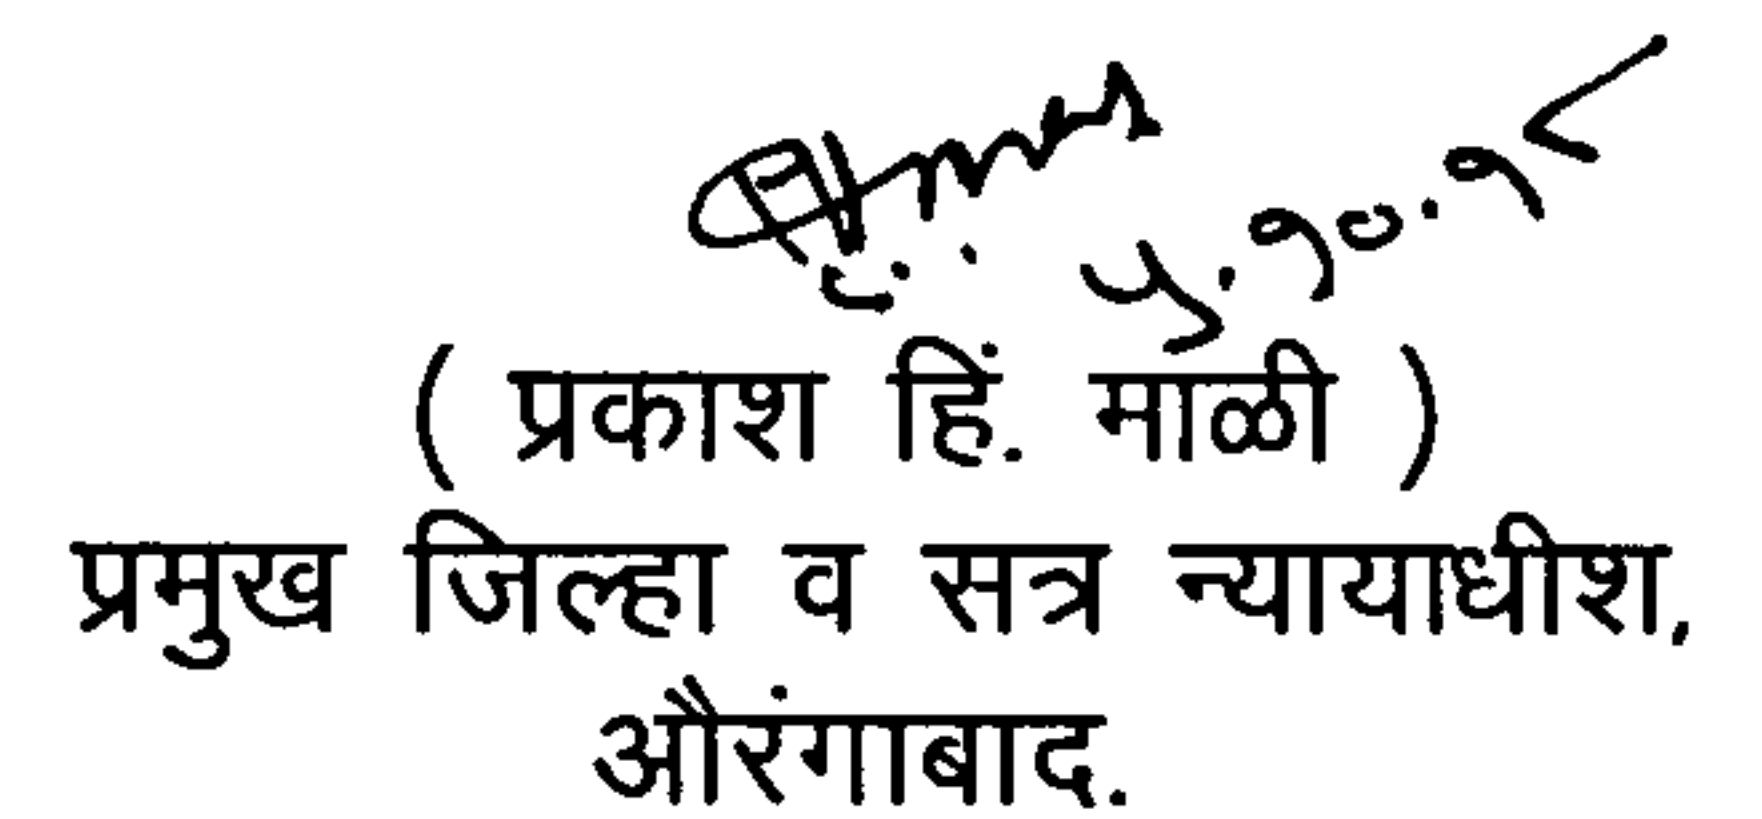 ५.१०.१८
( प्रकाश हिं. माळी )
प्रमुख जिल्हा व सत्र न्यायाधीश,
औरंगाबाद.